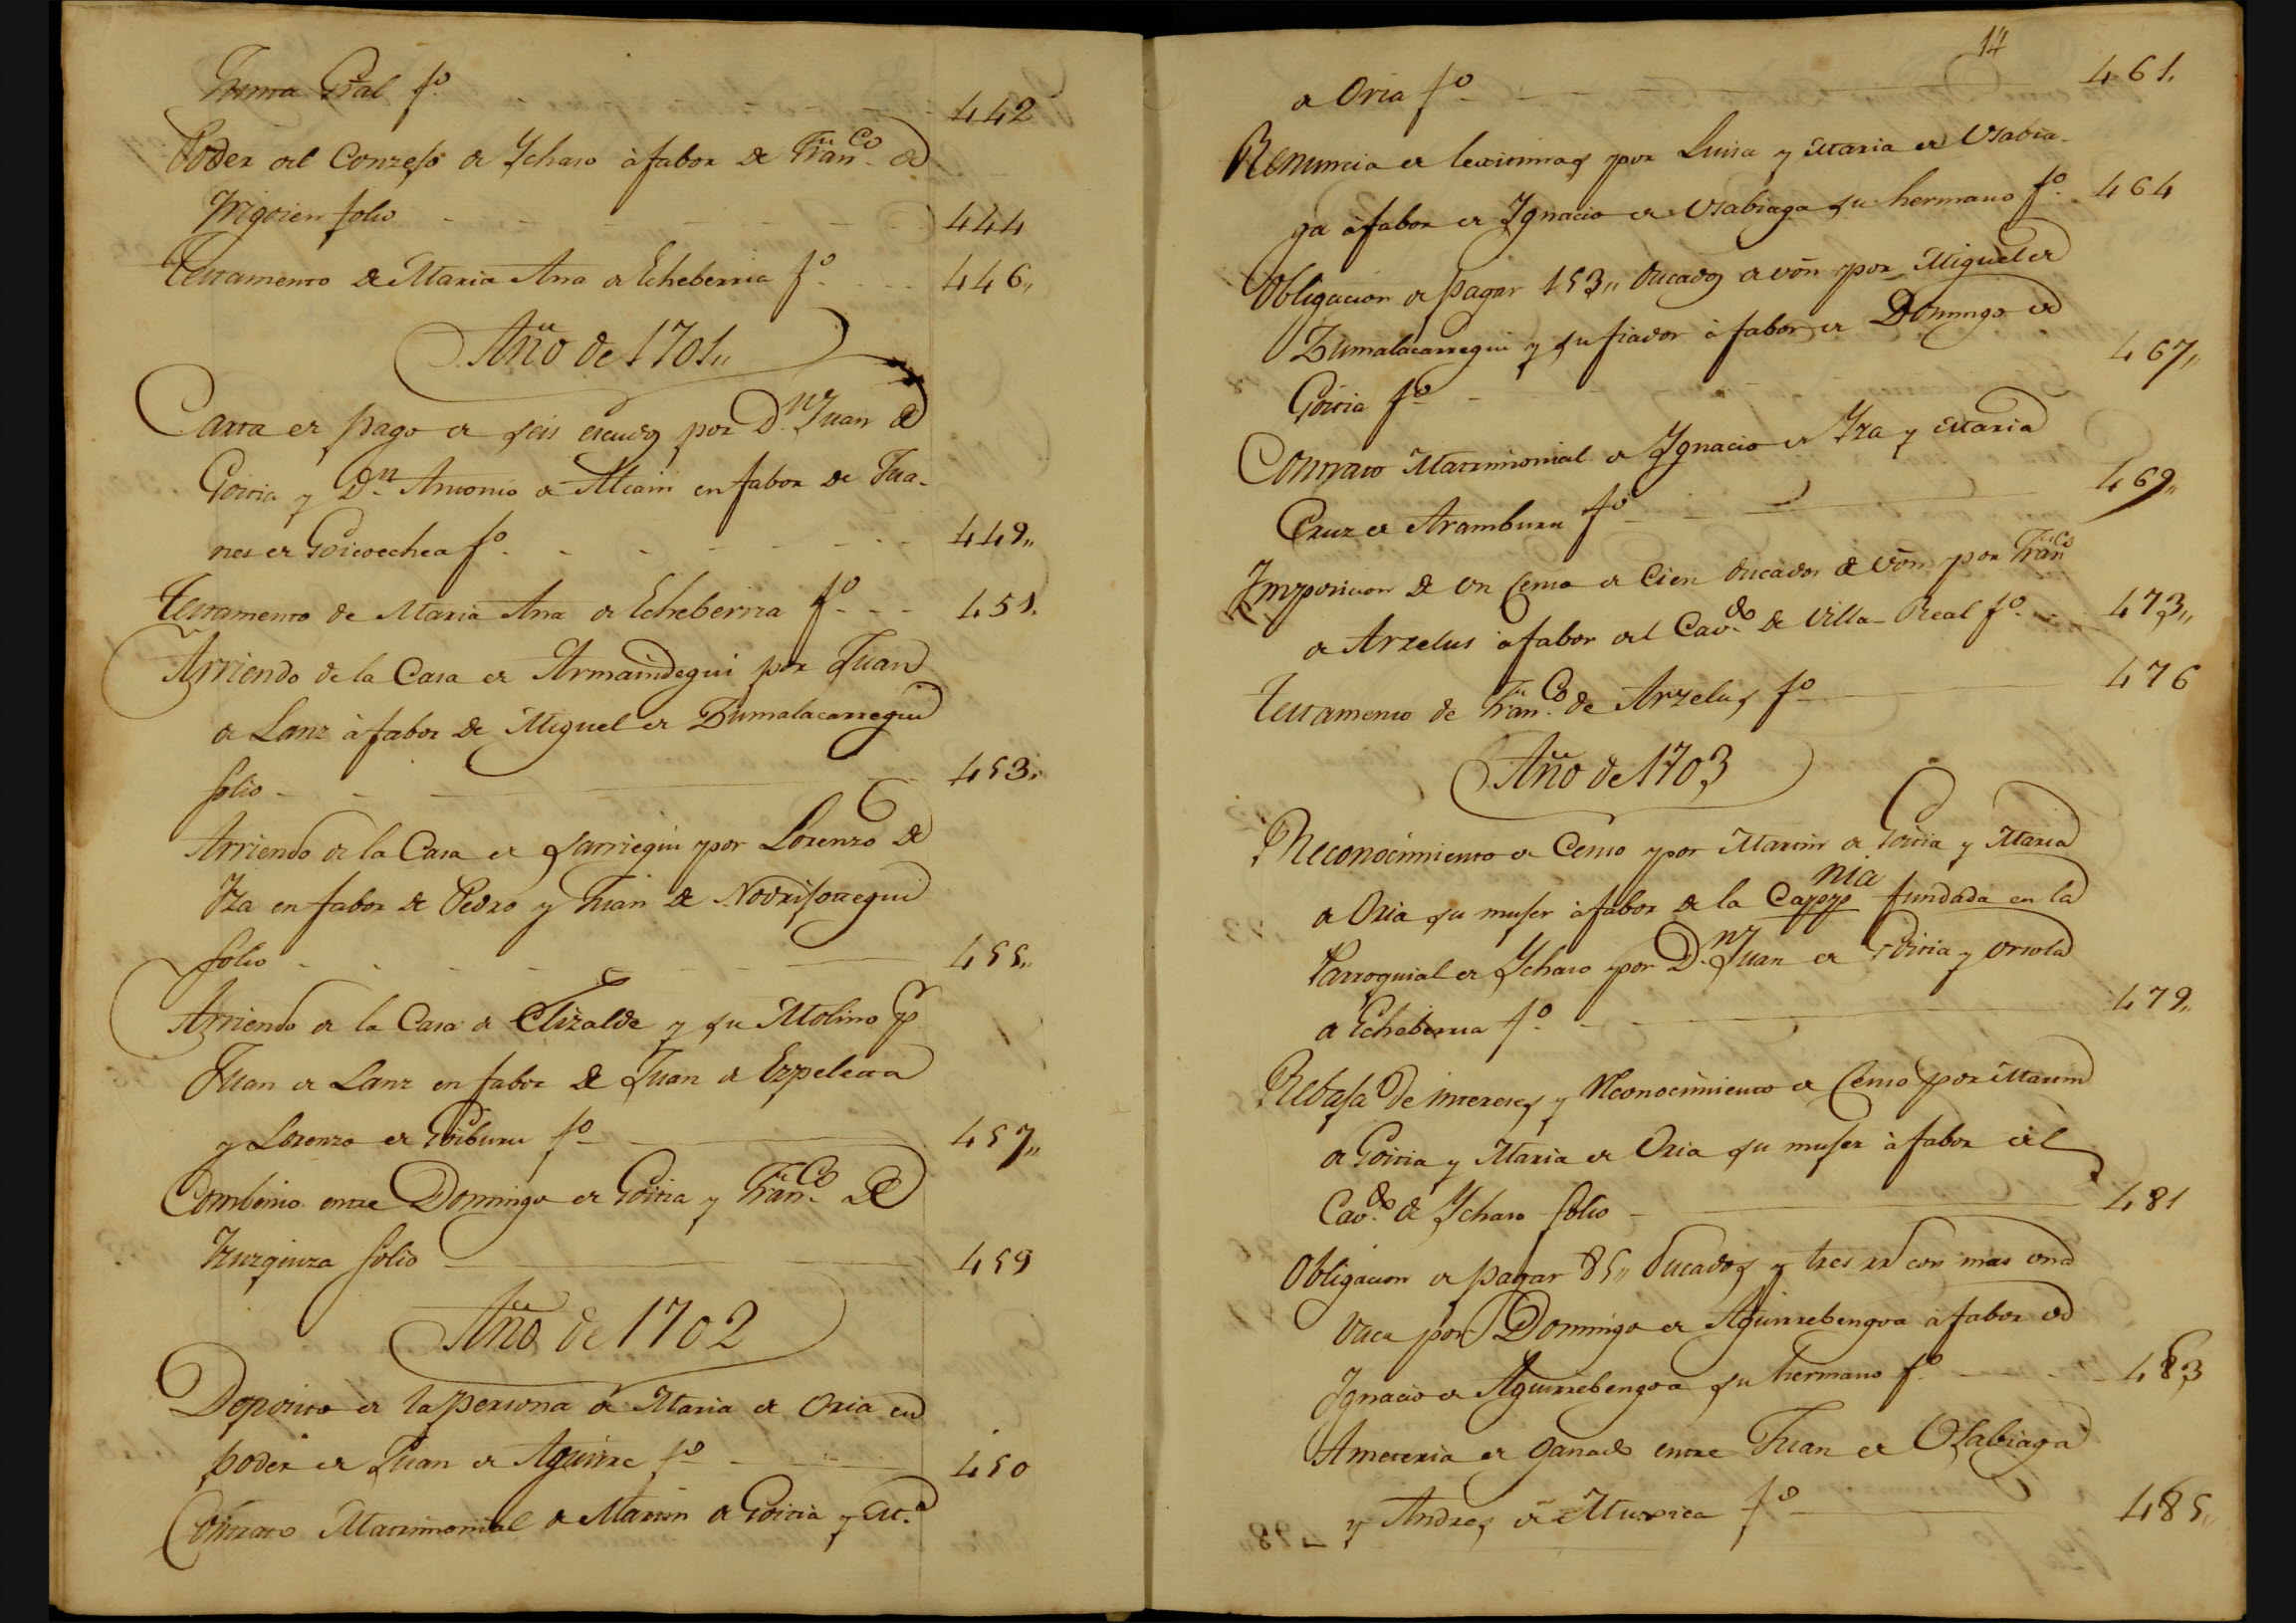 Junta Gral fº 442
Poder del Conzejo de Ychaso à fabor de Franco de
Yrigoien folio 444
Testamento de Maria Ana de Echeberria fº 446,,
Año de 1701,,
Carta de pago de seis escudos por Dn Juan de
Goitia y Dn Antonio de Alcain en fabor de Jua-
nes de Goicoechea fº 449,,
Testamento de Maria Ana de Echeberria fº 451.
Arriendo de la Casa de Armaindegui por Juan
de Lanz à fabor de Miguel de Zumalacarregui
folio 453,,
Arriendo de la Casa de Sarriegui por Lorenzo de
Yza en fabor de Pedro y Juan de
folio 455,,
Arriendo de la Casa de Elizalde y su Molino p.
Juan de Lanz en fabor de Juan de Ezpeleta
y Lorenzo de Goiburu fº 457,,
Combenio entre Domingo de Goitia y Franco de
Yzurquiza folio 459
Año de 1702
Deposito de la persona de Maria de Oria en
poder de Juan de Aguirre fº 450
Contrato Matrimonial de Martin de Goitia y M.a
14
de Oria fº 461.
Renuncia de lexitimas por Luisa y Maria de Usabia-
ga à fabor de Ygnacio de Usabiaga su hermano fº 464
Obligacion de pagar 153,, ducados de von por Miguel de
Zumalacarregui y su fiador à fabor de Domingo de
Goitia fº 467,,
Contrato Matrimonial de Ygnacio de Yza y Maria
Cruz de Aramburu fº 469,,
Ymposicion de un Censo de Cien ducados de von por Franco
de Arzelus à fabor del Cavdo de Villa-Real fº 473,,
Testamento de Franco de Arzelus fº 476
Año de 1703
Reconocimiento de Censo por Martin de Goitia y Maria
de Oria su muger à fabor de la Cappnia fundada en la
Parroquial de Ychaso por Dn Juan de Goitia y Ursola
de Echeberria fº 479,,
Rebaja de intereses y Reconocimiento de Censo por Martin
de Goitia y Maria de Oria su muger à fabor del
Cavdo de Ychaso folio 481
Obligacion de pagar 85,, ducados y tres rs con mas una
Vaca por Domingo de Aguirrebengoa à fabor de
Ygnacio de Aguirrebengoa su hermano fº 483
Ameteria de ganado entre Juan de Usabiaga
y Andres de Muxica fº 485,,